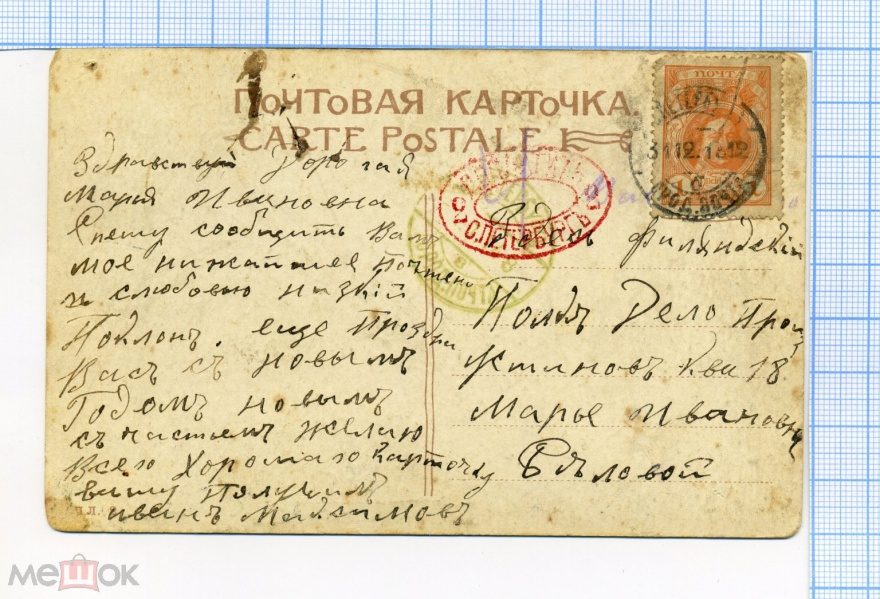 ПОЧТОВАЯ КАРТОЧКА.
CARTE POSTALE
Здравствуй Дорогая
Мария Ивановна
Спешу сообщить Вам
мое нижайшее почтень
и слюбовью низкій
Поклонъ. еще Проздра
Васъ съ новымъ
Годомъ новымъ
съчастьемъ желаю
Всего Хорошаго Карточку
вашу Получилъ
иванъ Максимовъ
С.ПЕТЕРБУРГЪ
31 12.1 12
Филяндскій
Полдъ Дело Про
Устиновъ Кви 18
Марье Ивановны
Бѣловой
мешок